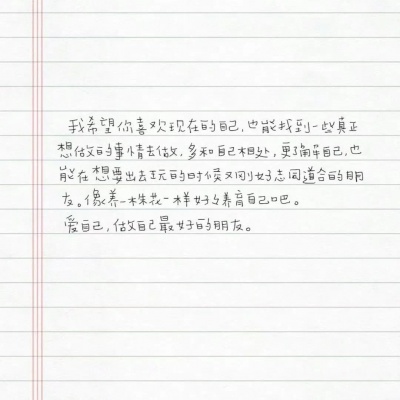 我希望你喜欢现在的自己,也能找到一些真正
想做的事情去做,多和自己相处,更了解自己,也
能在想要出去玩的时候又刚好志同道合的朋
友。像养一株花一样好好养育自己吧。
爱自己,做自己最好的朋友。